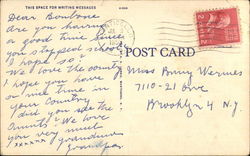 THIS SPACE FOR WRITING MESSAGES
Dear Bonbone
Are you having
a good time since
you stopped school
I hope so
We love the country
I hope you have
a nice time in
your Country
did you see the
Quints. We love
you very much
grandma
grandpa
POST CARD
Miss Bunny Wermes
7110-21 Ave
Brooklyn 4 N.Y